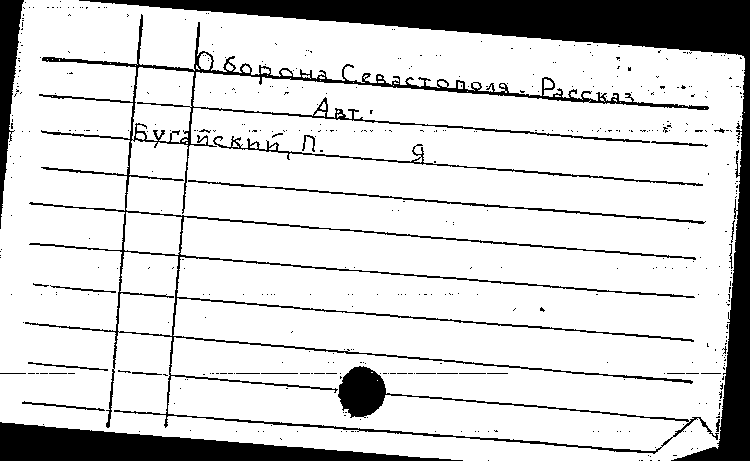 Оборона Севастополя. Рассказ
Авт.:
Бугайский, П. Я.